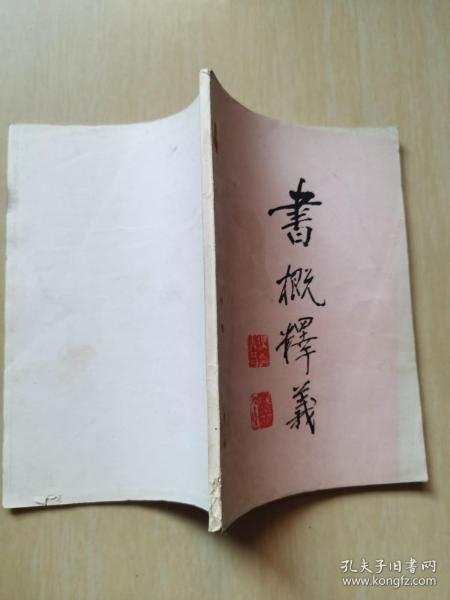 書概釋義
孔夫子旧书网
www.kongfz.com